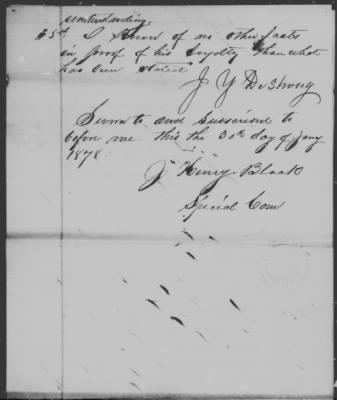 understanding.
65th I Know of no other facts
in proof of his loyalty than what
has been stated
J Y DeShong
Sworn to and subscribed to
before me this the 30th day of Jany
1878.
J Henry Black
Special Com